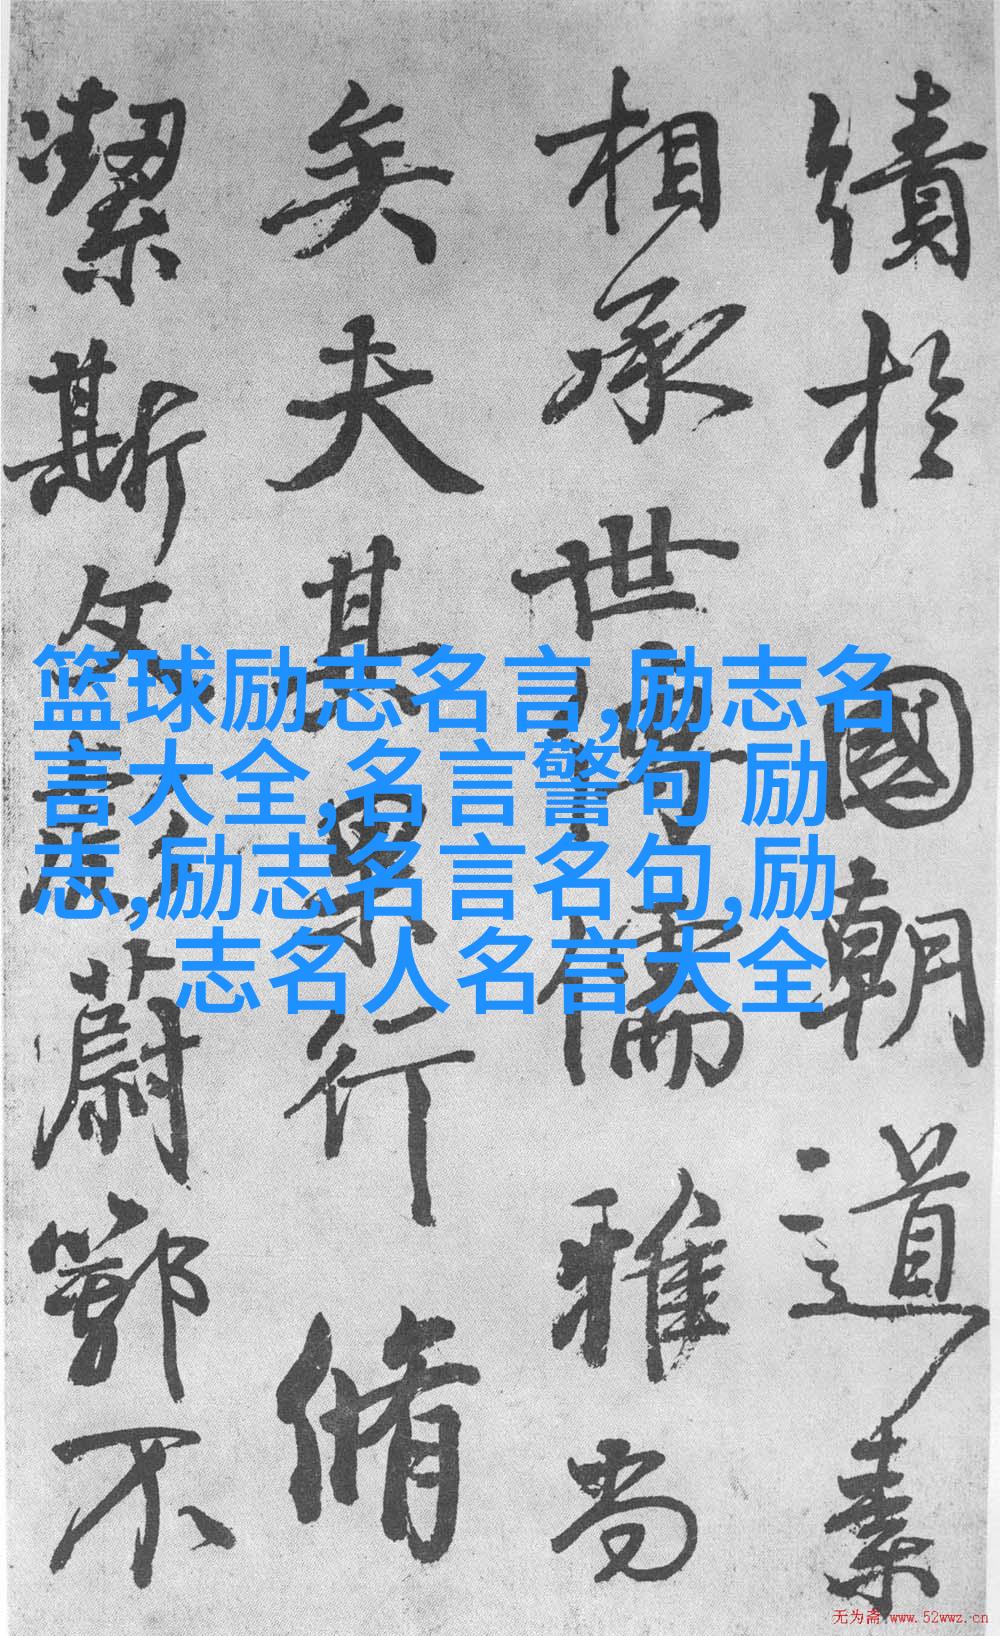 績於國朝道素
相承世傳儒雅尚
矣夫其果行脩
潔斯文彪蔚鄂不
篮球励志名言,励志名
言大全,名言警句 励
志,励志名言名句,励
志名人名言大全
无为斋 www.52wwz.cn